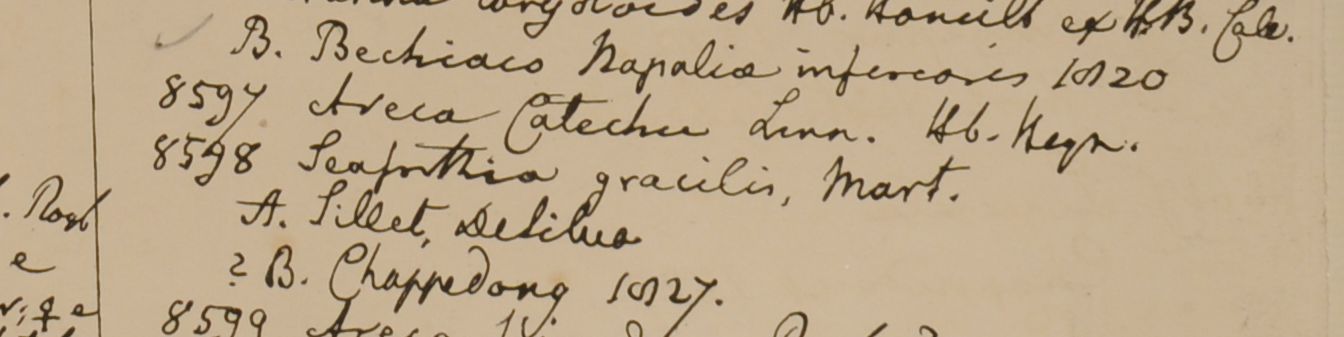 Hb. Hamilt ex H.B. Calc.
B. Bechiaco Napaliæ inferioris 1820
8597 Areca Catechu Linn. Hb. Heyn.
8598 Seaforthia gracilis, Mart.
. Roxb
A. Sillet, DeSilva
e
? B. Chappedong 1827.
8599 Areca